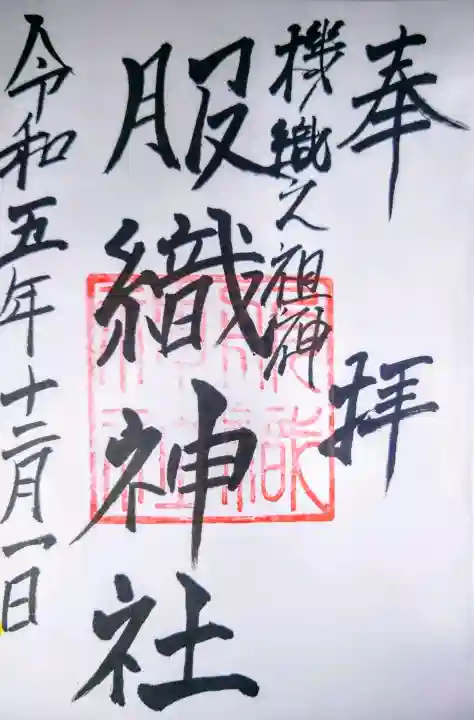 奉拝
機織之祖神
服織神社
令和五年十二月一日